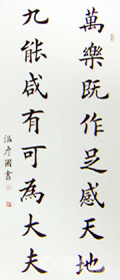 萬樂既作足感天地
九能咸有可為大夫
溫彦國書